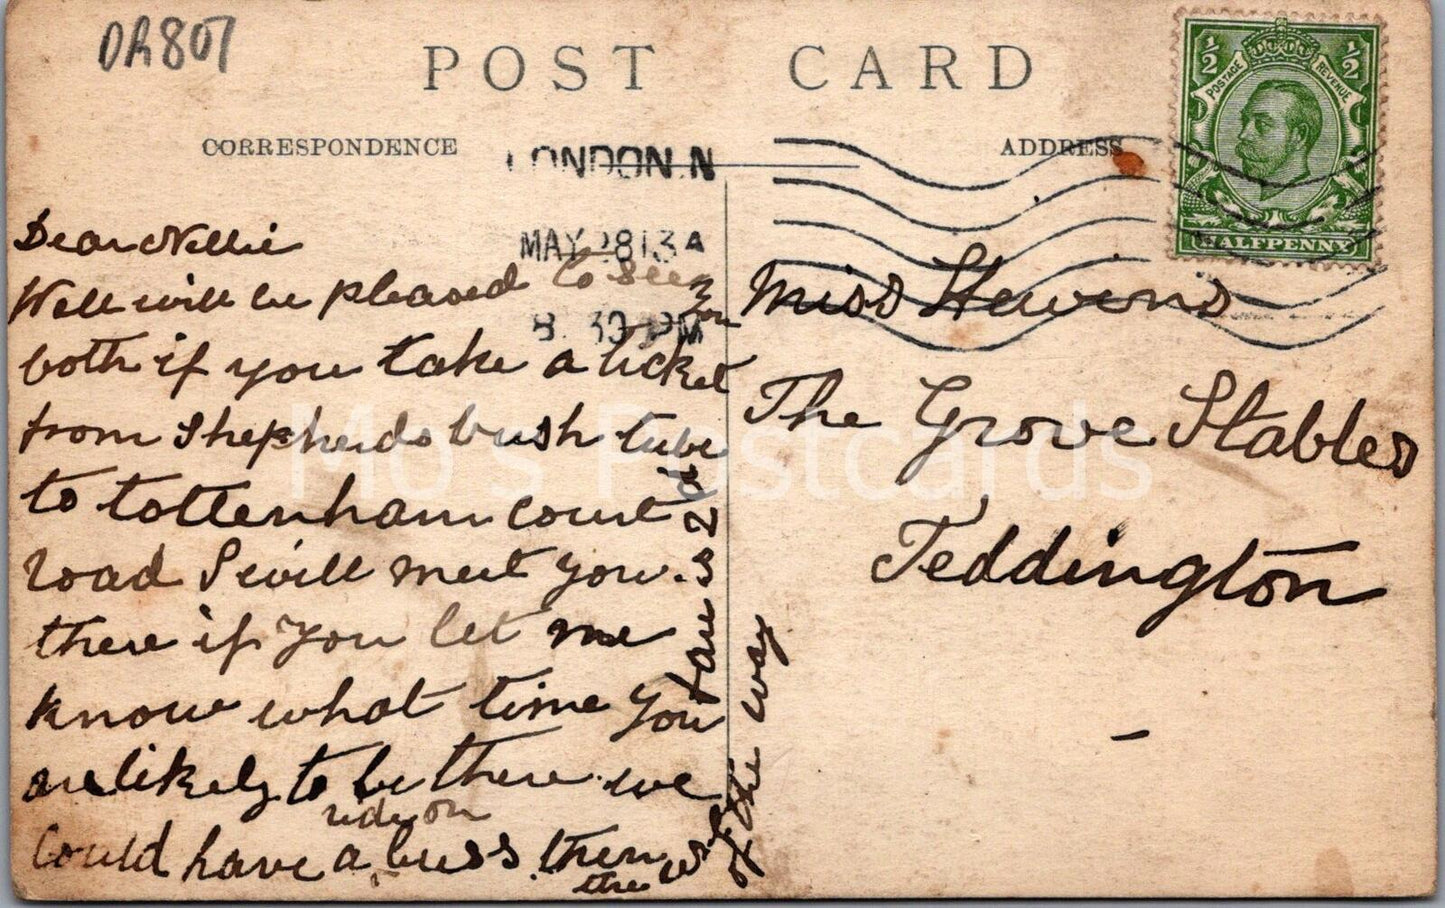 DR807
POST CARD
CORRESPONDENCE
ADDRESS
LONDON. N
MAY 28 13 A
8. 30 PM
½ ½
POSTAGE REVENUE
HALFPENNY
Dear Nellie
Well will be pleased to see
you
both if you take a ticket
from Shepherds bush tube
to tottenham court
road I will meet you.
there if you let me
know what time you
are likely to be there we
ride on
could have a buss then
the whole
of the way
fare is 2d
Miss Hewins
The Grove Stables
Teddington
Mo's Postcards